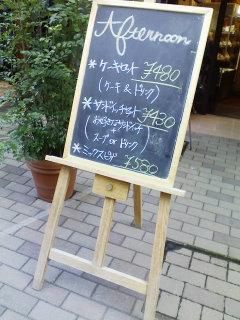 Afternoon
* ケーキセット ¥480
(ケーキ & ドリンク)
* サンドイッチセット ¥430
(お好きなサンドイッチ
+
スープ or ドリンク)
* ミックスピザ ¥580